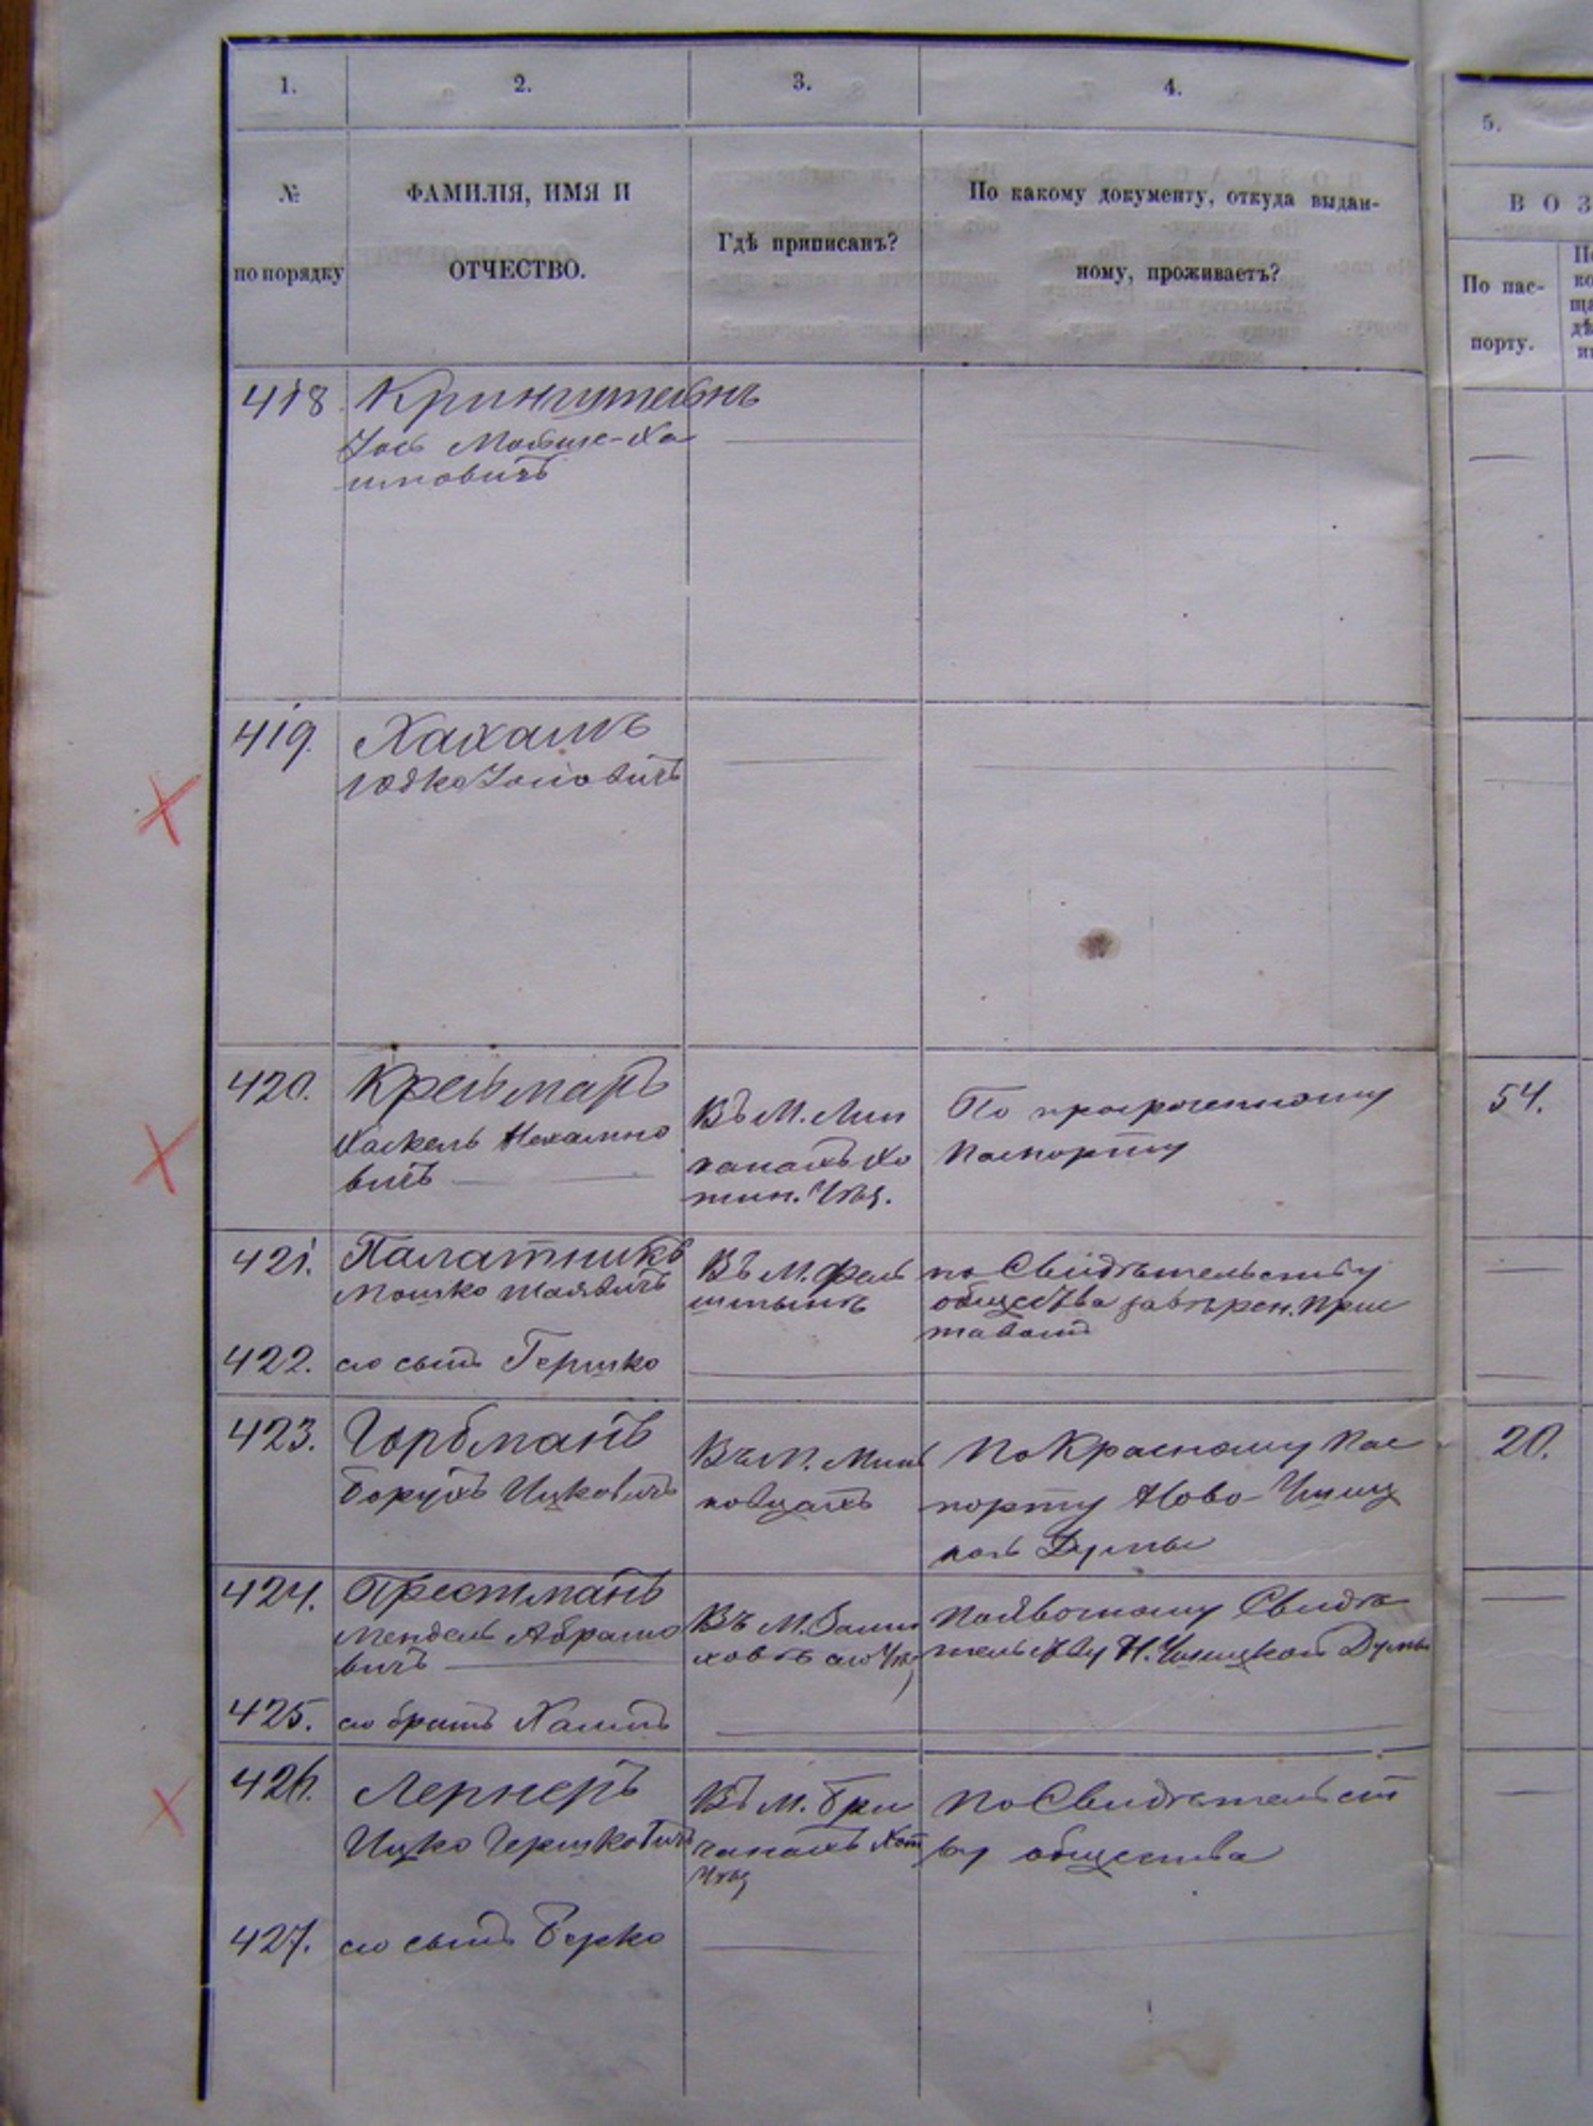 1. 2. 3. 4. 5.
№ по порядку
ФАМИЛІЯ, ИМЯ И
ОТЧЕСТВО.
Гдѣ приписанъ?
По какому документу, откуда выдан-
ному, проживаетъ?
ВОЗ
По пас-
порту.
418 Кринштейнъ
Іось Мойше-Ха
имовичъ
419. Хахамъ
Юдко Іосіовичъ
420. Креймаръ
Хаскель Нехамио
вичъ
Въ М. Лип
канахъ Хо
тин. Уѣз.
По просроченному
паспорту
54.
421. Палатникъ
Мошко Шаявичъ
Въ М. Фель
штынѣ
по Свидѣтельству
общества завѣрен. При
ставомъ
422. его сынъ Гершко
423. Горбманъ
Борухъ Ицковичъ
Въ М. Минь
ковцахъ
По Красному пас
порту Ново-Ушиц
кой Думы
20.
424. Престманъ
Мендель Абрамо
вичъ
Въ М. Замѣ
ховѣ
По явочному Свидѣ
тельству Н. Ушицкой Думы
425. его братъ Хаимъ
426. Лернеръ
Ицко Гершковичъ
Въ М. Бри
чанахъ Хот
Уѣз
По Свидѣтельст
ву общества
427. его сынъ Берко